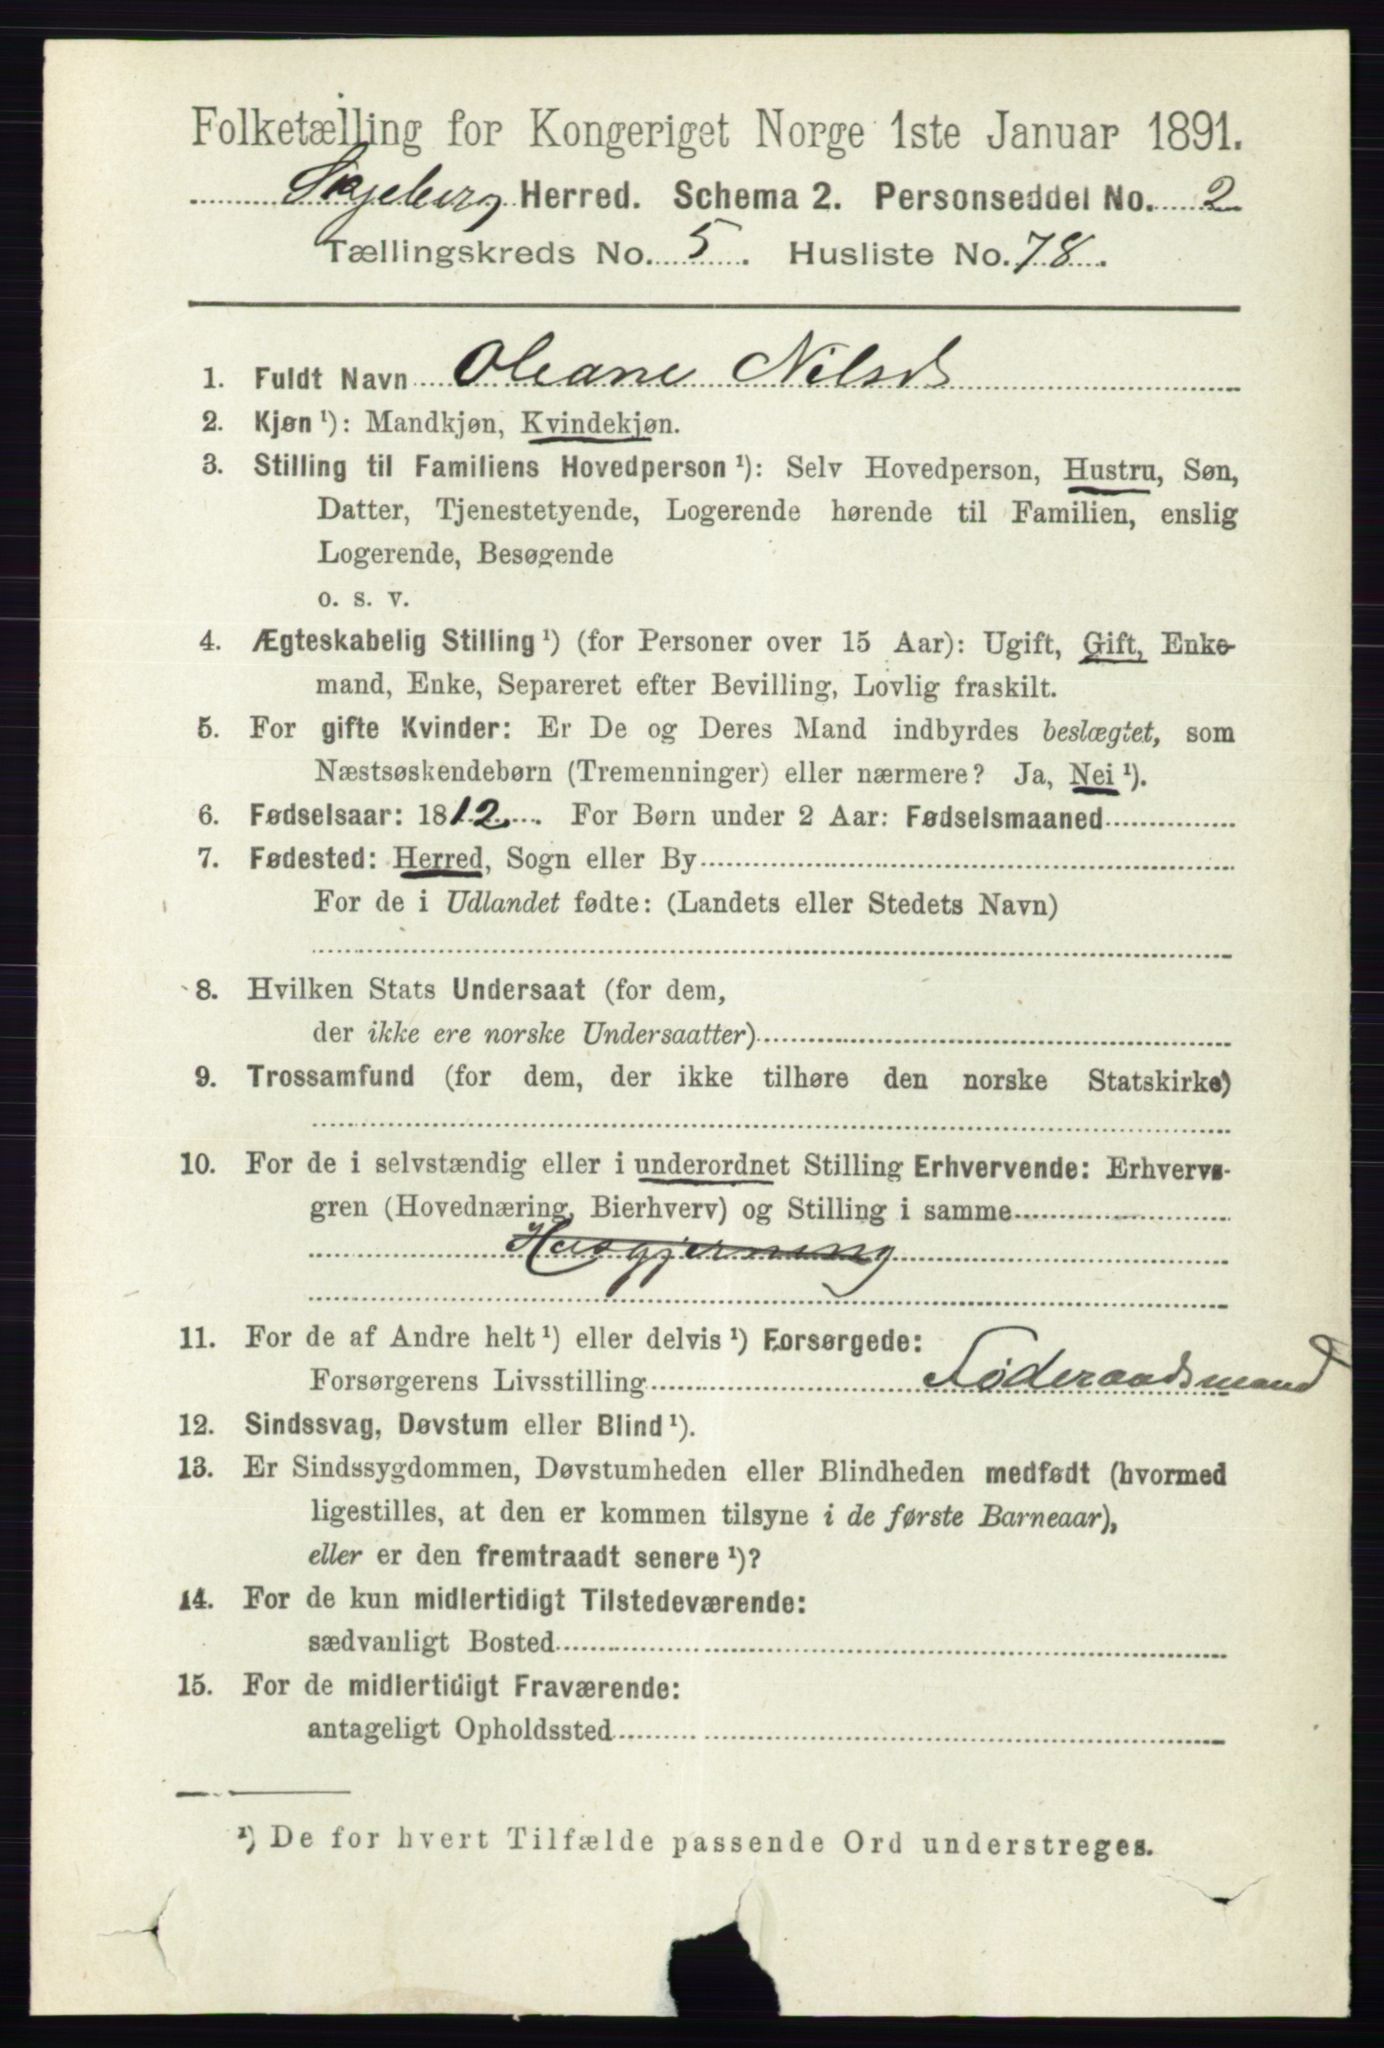 Folketælling for Kongeriget Norge 1ste Januar 1891.
Skjeberg Herred. Schema 2. Personseddel No. 2
Tællingskreds No. 5. Husliste No. 78.
1. Fuldt Navn Oleane Nilsd
2. Kjøn ¹): Mandkjøn, Kvindekjøn.
3. Stilling til Familiens Hovedperson ¹): Selv Hovedperson, Hustru, Søn,
Datter, Tjenestetyende, Logerende hørende til Familien, enslig
Logerende, Besøgende
o. s. v.
4. Ægteskabelig Stilling ¹) (for Personer over 15 Aar): Ugift, Gift, Enke-
mand, Enke, Separeret efter Bevilling, Lovlig fraskilt.
5. For gifte Kvinder: Er De og Deres Mand indbyrdes beslægtet, som
Næstsøskendebørn (Tremenninger) eller nærmere? Ja, Nei ¹).
6. Fødselsaar: 1812. For Børn under 2 Aar: Fødselsmaaned
7. Fødested: Herred, Sogn eller By
For de i Udlandet fødte: (Landets eller Stedets Navn)
8. Hvilken Stats Undersaat (for dem,
der ikke ere norske Undersaatter)
9. Trossamfund (for dem, der ikke tilhøre den norske Statskirke)
10. For de i selvstændig eller i underordnet Stilling Erhvervende: Erhvervs-
gren (Hovednæring, Bierhverv) og Stilling i samme
Husgjerning
11. For de af Andre helt ¹) eller delvis ¹) Forsørgede:
Forsørgerens Livsstilling Føderaadsmand
12. Sindssvag, Døvstum eller Blind ¹).
13. Er Sindssygdommen, Døvstumheden eller Blindheden medfødt (hvormed
ligestilles, at den er kommen tilsyne i de første Barneaar),
eller er den fremtraadt senere ¹)?
14. For de kun midlertidigt Tilstedeværende:
sædvanligt Bosted
15. For de midlertidigt Fraværende:
antageligt Opholdssted
¹) De for hvert Tilfælde passende Ord understreges.